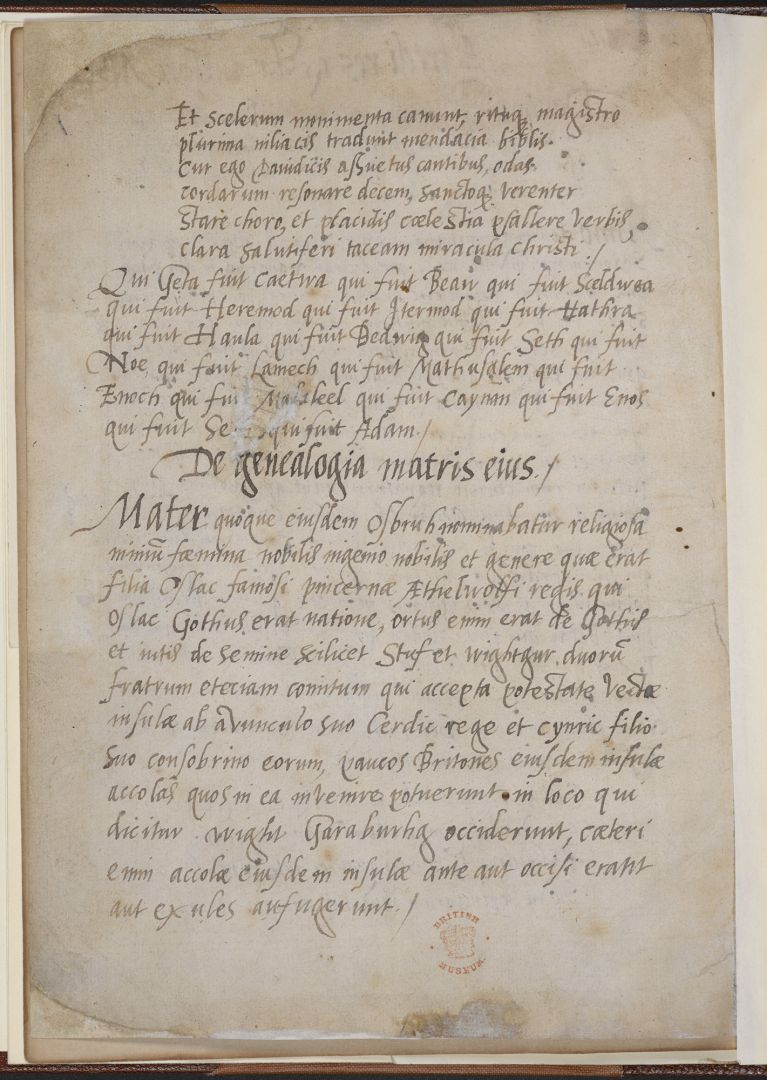 Et scelerum monimenta canunt, rituq magistro
plurima niliacis tradunt mendacia biblis.
Cur ego Dauidicis assuetus cantibus, odas
cordarum resonare decem, sanctoq verenter
stare choro, et placidis cœlestia psallere verbis,
clara salutiferi taceam miracula christi:/
Qui Geta fuit Caetwa qui fuit Beaw qui fuit Sceldwea
qui fuit Heremod qui fuit Itermod qui fuit Hathra
qui fuit Hwala qui fuit Bedwig qui fuit Seth qui fuit
Noe, qui fuit Lamech qui fuit Mathusalem qui fuit
Enoch qui fui Malaleel qui fuit Caynan qui fuit Enos
qui fuit Se qui fuit Adam./
De genealogia matris eius./
Mater quoque eiusdem Osbruh nominabatur religiosa
nimiū fœmina nobilis ingenio nobilis et genere quæ erat
filia Oslac famosi pincernæ Æthelwolfi regis qui
Oslac Gothus erat natione, ortus enim erat de Gothis
et iutis de semine scilicet Stuf et wightgur duorū
fratrum et eciam comitum qui accepta potestate Vectæ
insulæ ab avunculo suo Cerdic rege et cynric filio
suo consobrino eorum, paucos Britones eiusdem insulæ
accolas quos in ea invenire potuerunt in loco qui
dicitur wight Garaburhg occiderunt, cæteri
enim accolæ eiusdem insulæ ante aut occisi erant
aut exules aufugerunt./
BRITISH
MUSEUM